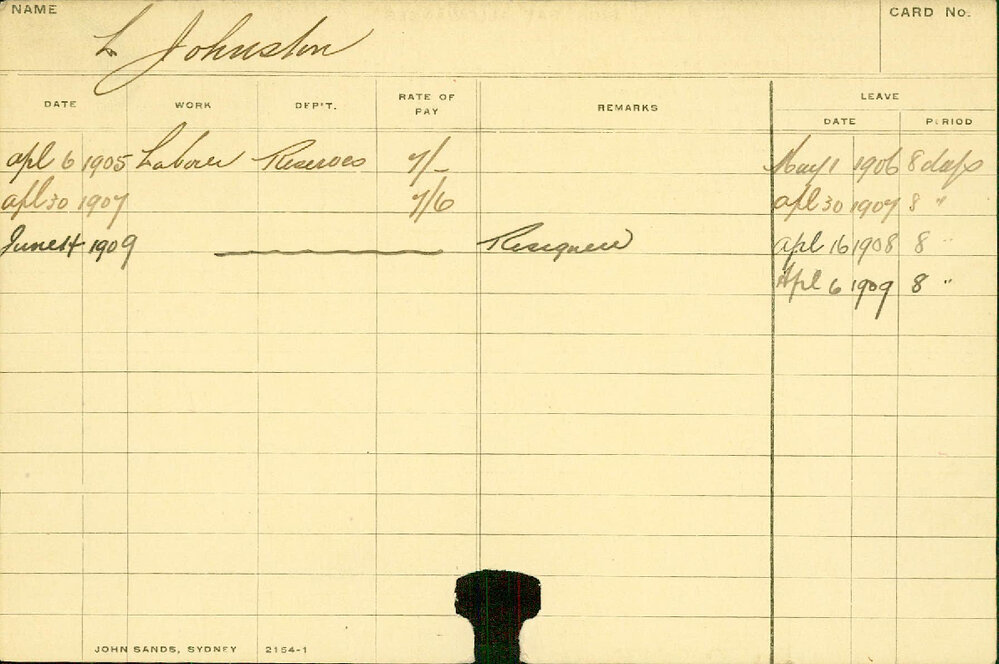 NAME
CARD No.
L Johnston
DATE WORK DEP'T. RATE OF PAY REMARKS LEAVE
DATE PERIOD
Apl 6 1905 Laborer Reserves 7/_ May 1 1906 8 days
Apl 30 1907 7/6 Apl 30 1907 8 "
June 14 1909 Resigned Apl 16 1908 8 "
Apl 6 1909 8 "
JOHN SANDS, SYDNEY 2154-1